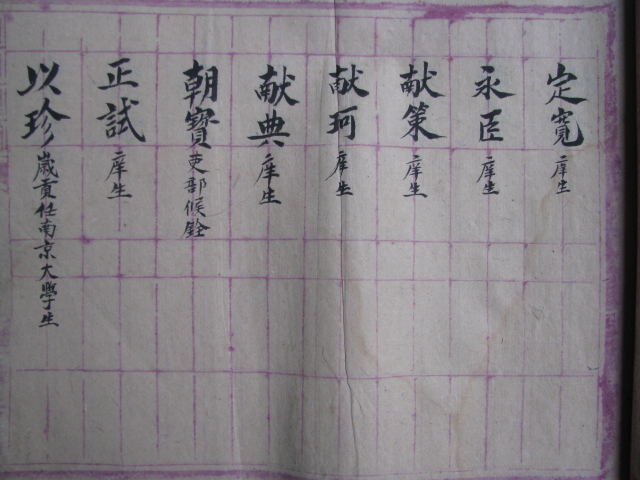 定寬 庠生
永臣 庠生
献策 庠生
献珂 庠生
献典 庠生
朝寳 吏部候銓
正試 庠生
以珍 歲貢任南京大學生